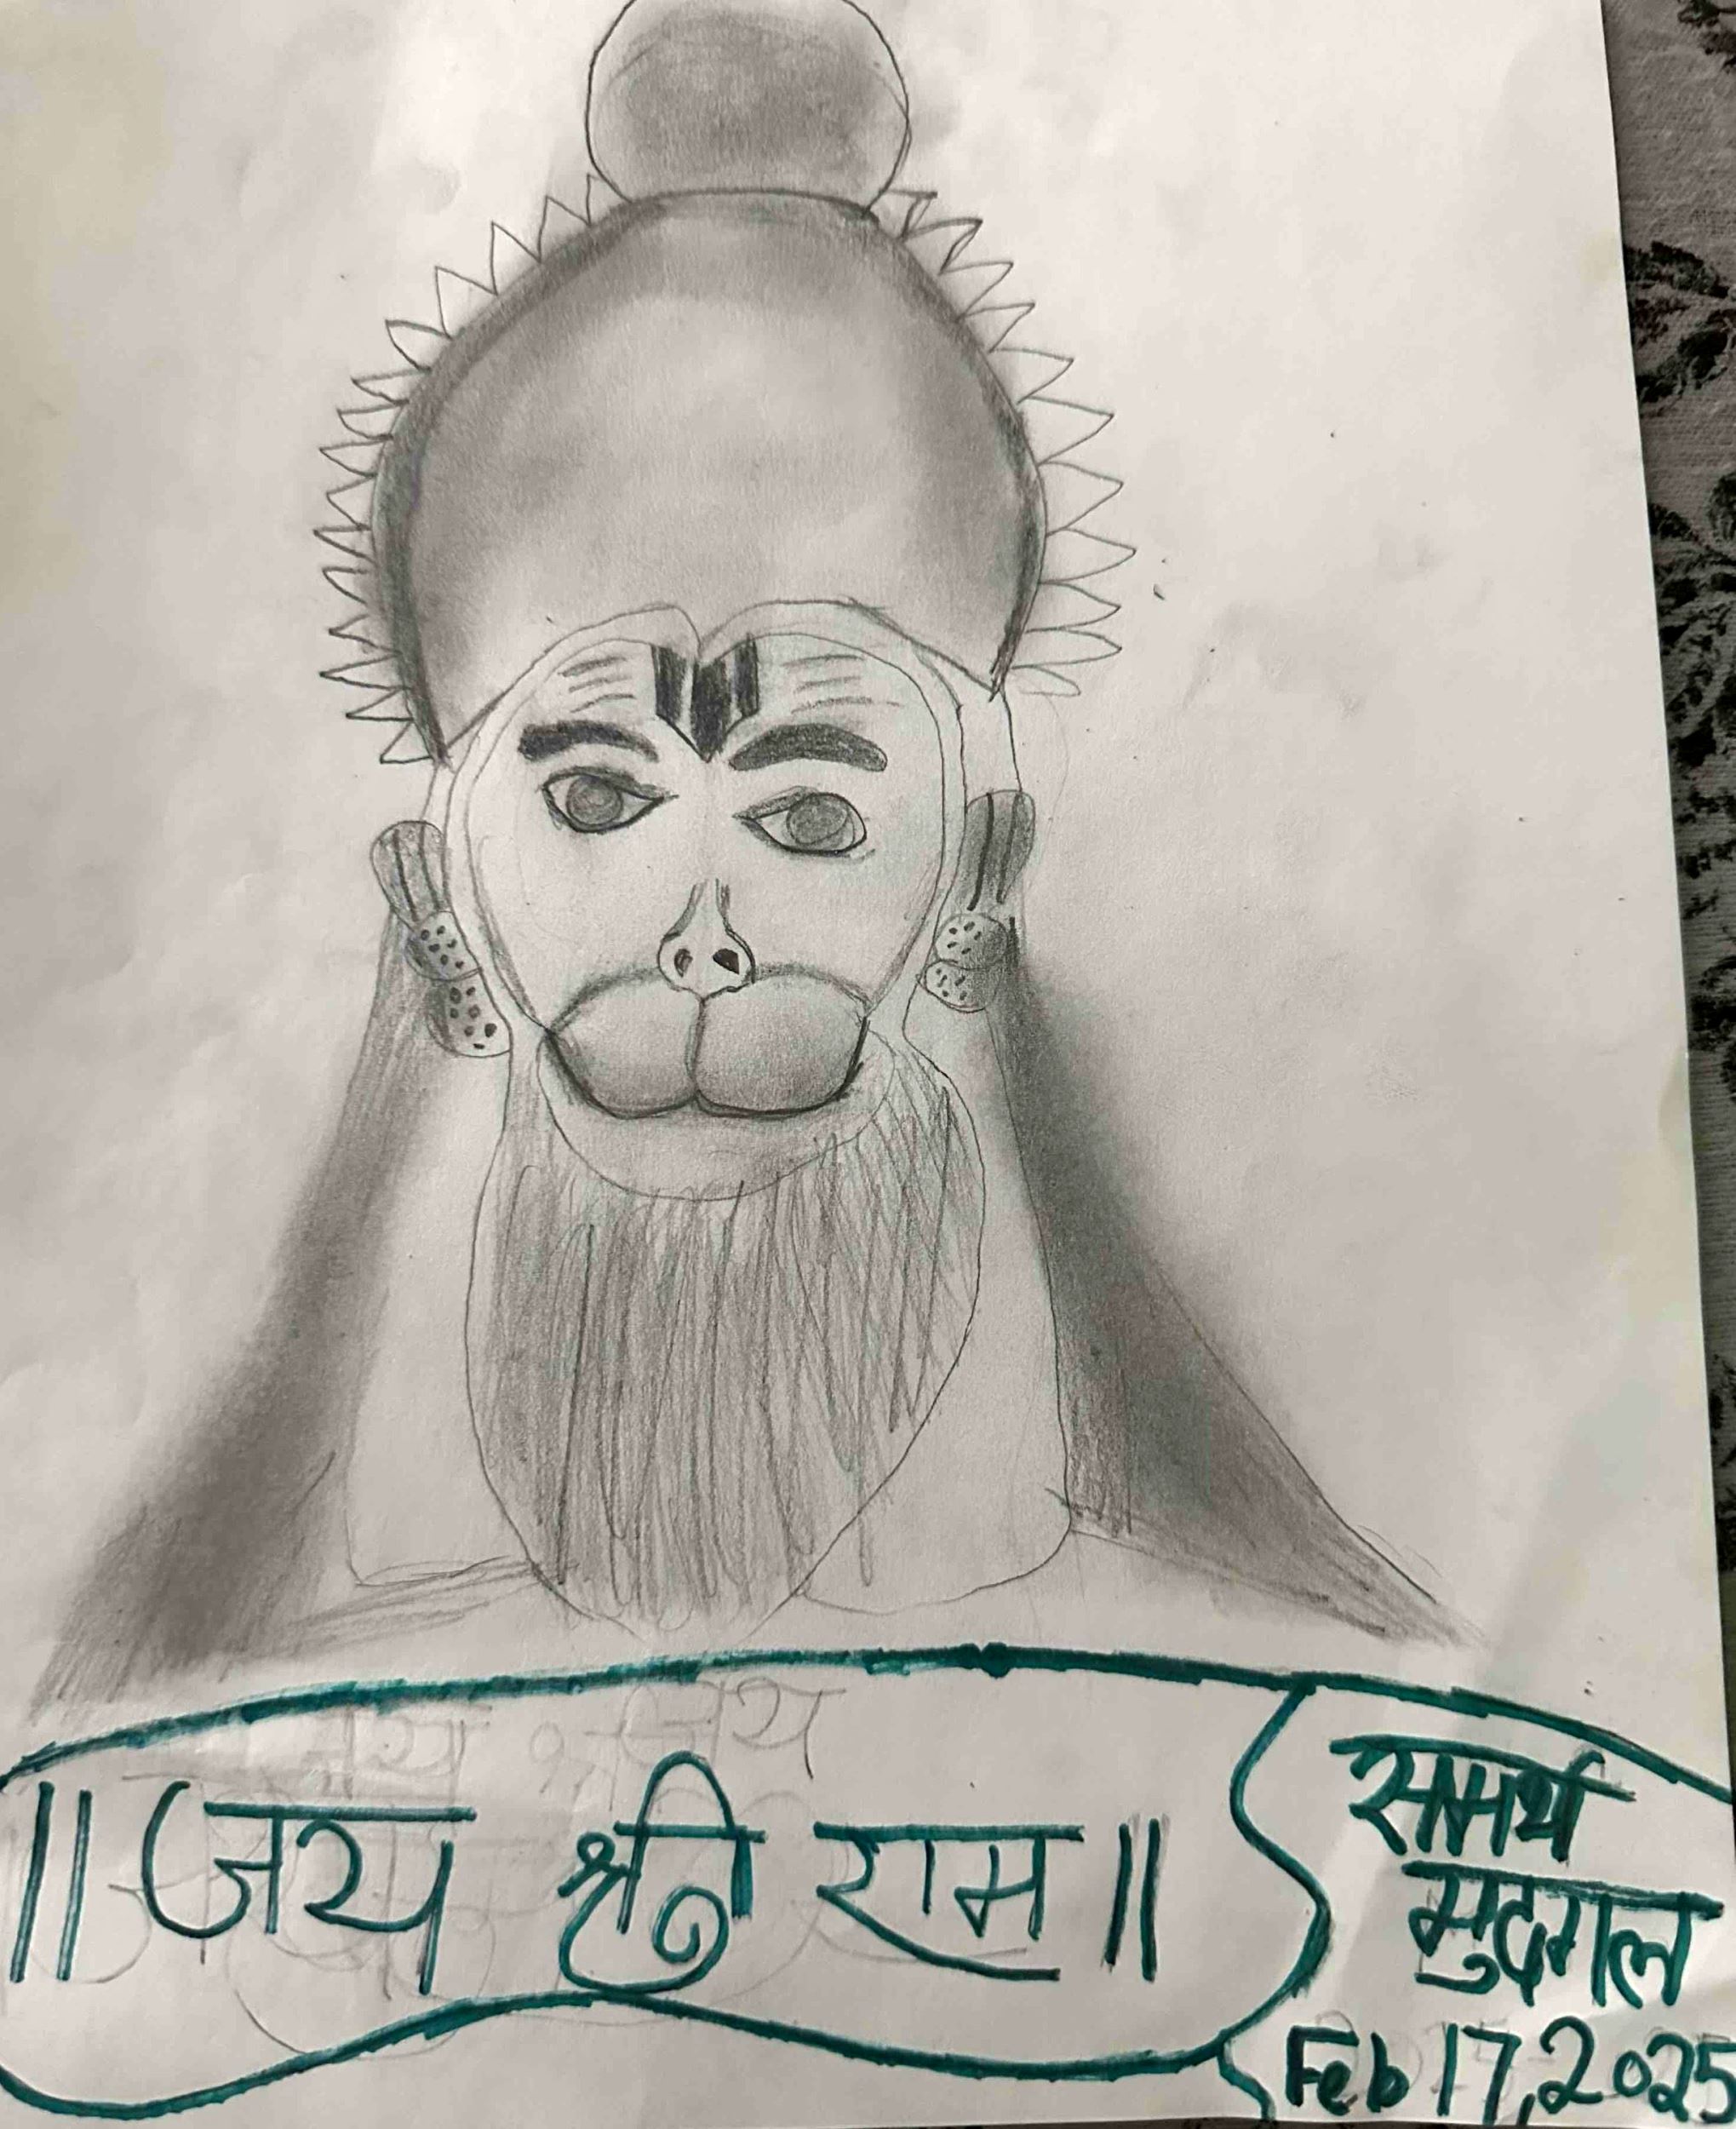 ॥ जय श्री राम ॥
समर्थ
मुदगल
Feb 17, 2025